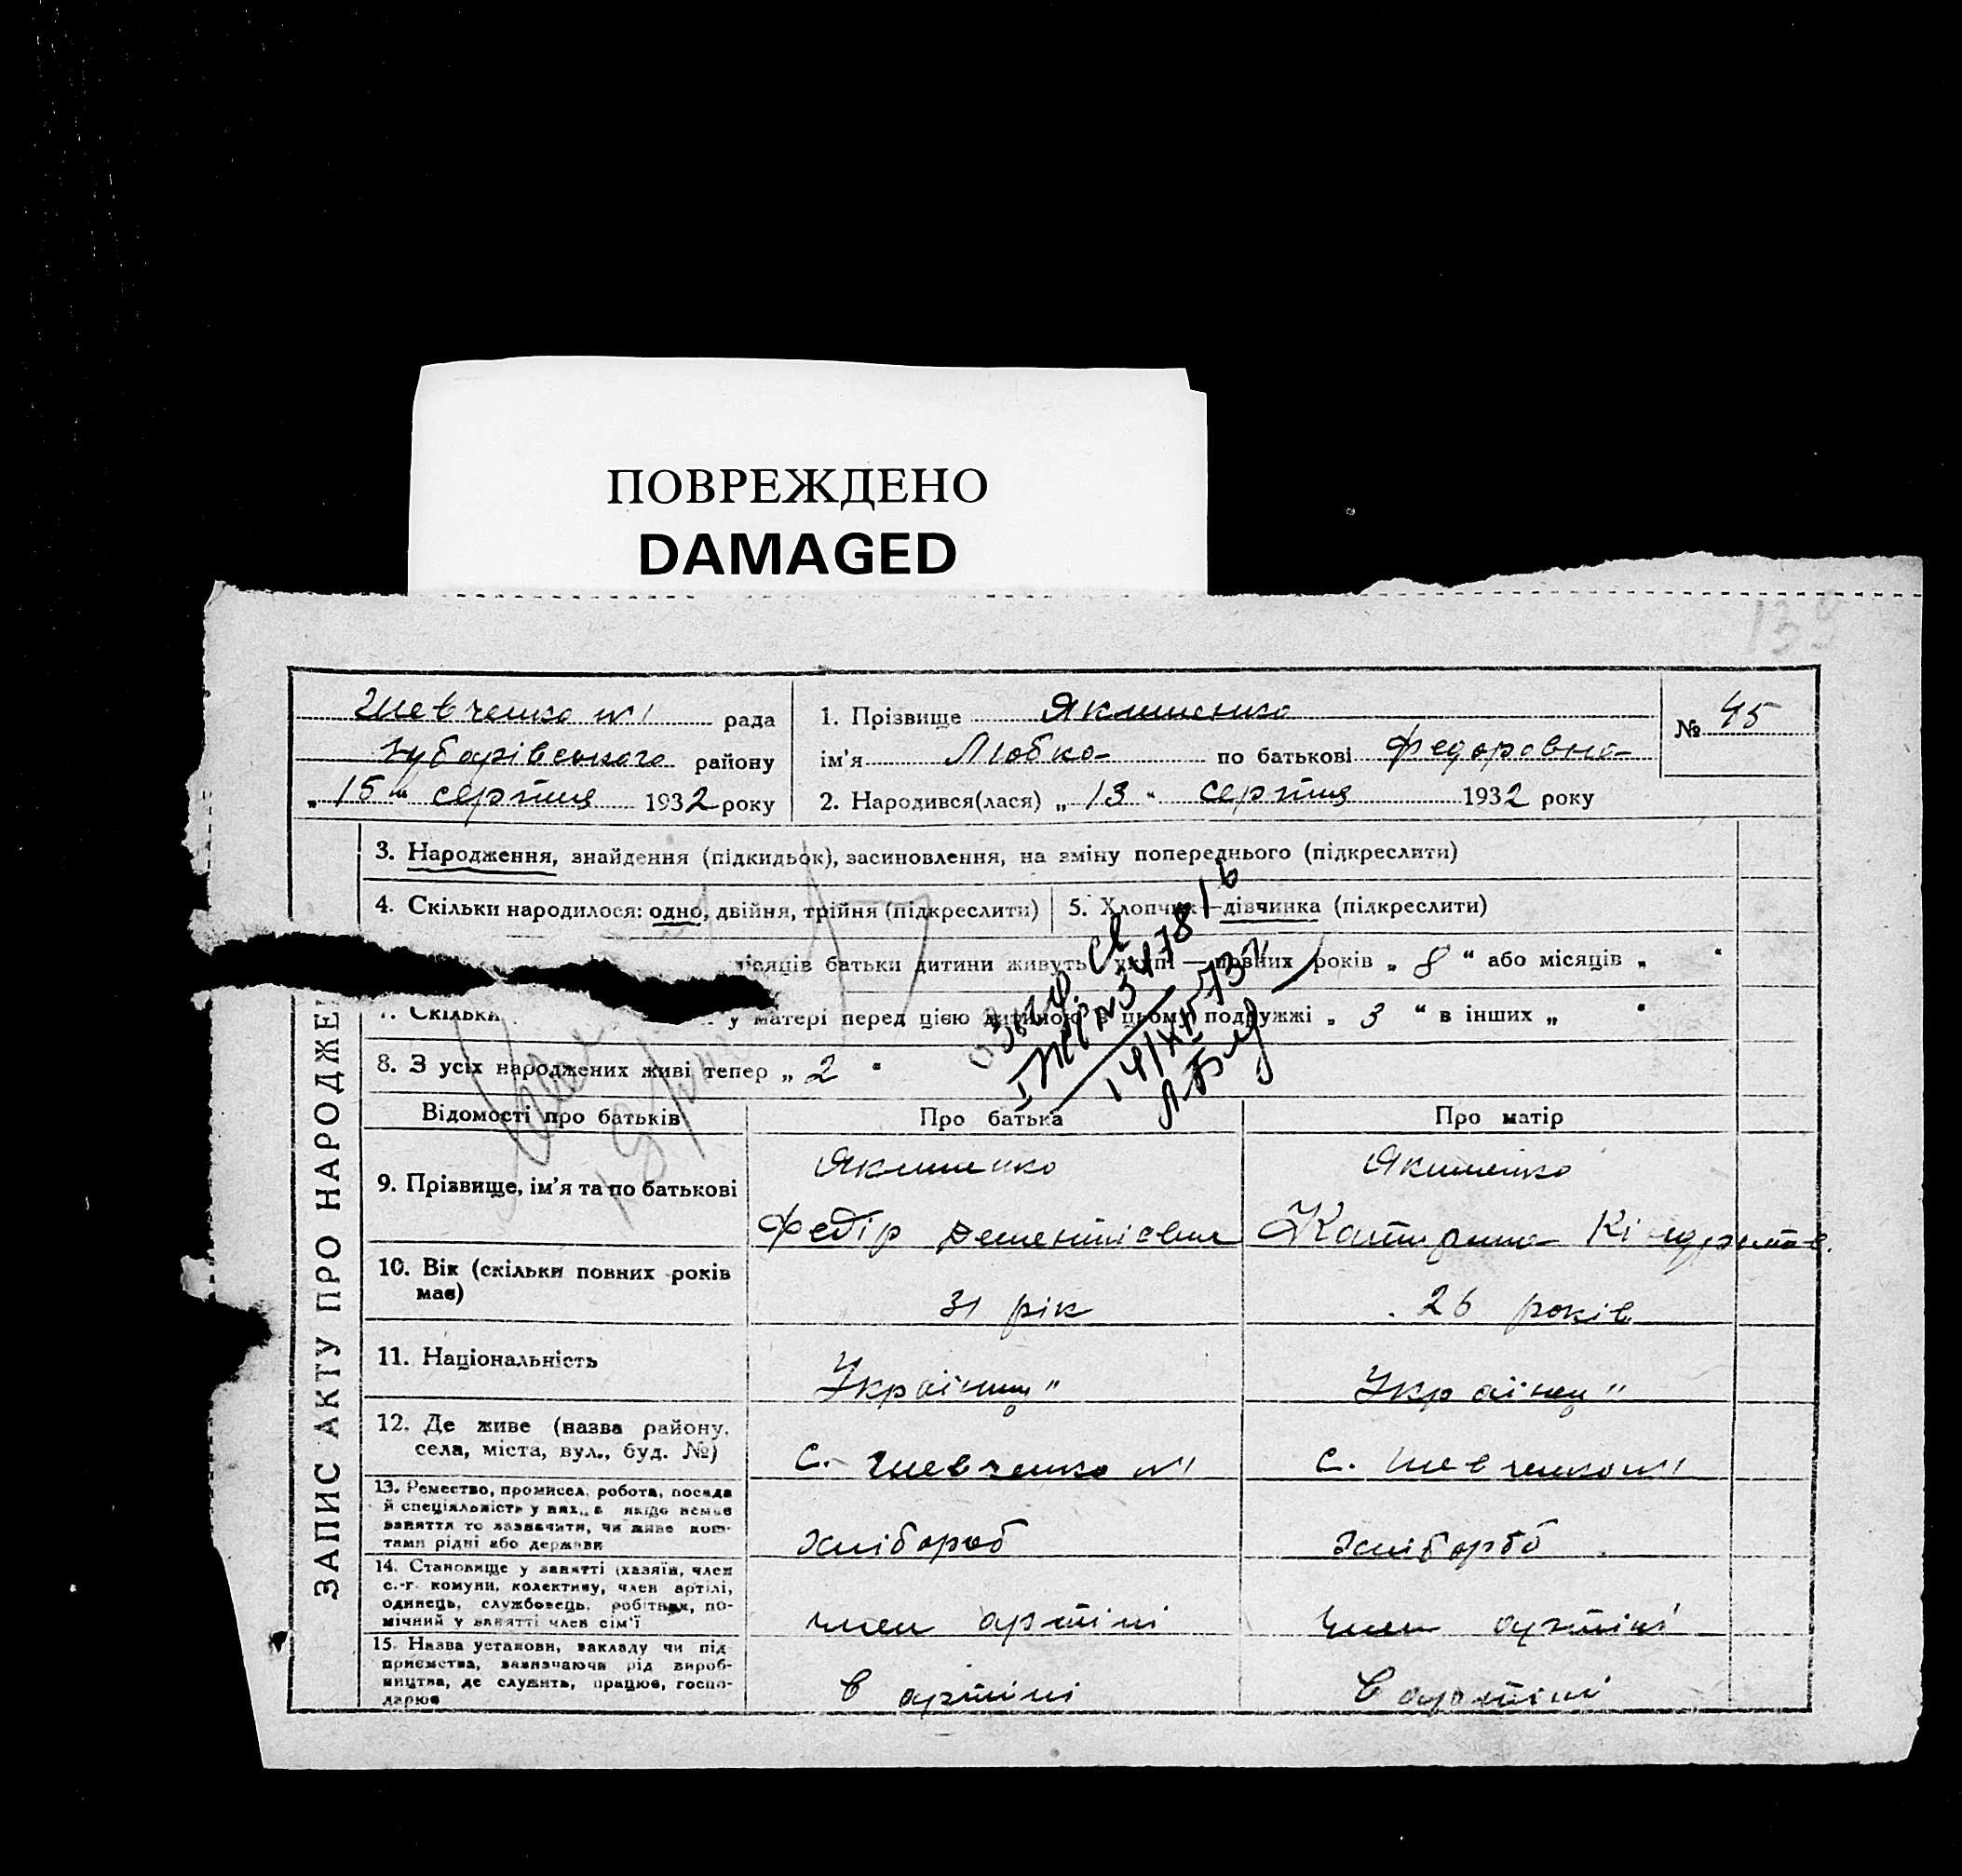 ПОВРЕЖДЕНО
DAMAGED
139
Шевченко №1 рада
району
„ 15 “ серпня 1932 року
1. Прізвище Якименко
ім'я Любка по батькові Федоровна
№ 45
2. Народився(лася) „ 13 “ серпня 1932 року
ЗАПИС АКТУ ПРО НАРОДЖЕ
3. Народження, знайдення (підкидьок), засиновлення, на зміну попереднього (підкреслити)
4. Скільки народилося: одно, двійня, трійня (підкреслити)
5. Хлопчик—дівчинка (підкреслити)
місяців батьки дитини живуть — повних років „ 8 “ або місяців „ “
7. Скільки у матері перед цією дитиною в цьому подружжі „ 3 “ в інших „ “
8. З усіх народжених живі тепер „ 2 “
Відомості про батьків Про батька Про матір
9. Прізвище, ім'я та по батькові
Якименко
Федір Дементієвич
Якименко
Катирина Кіндратов.
10. Вік (скільки повних років має)
31 рік
26 років
11. Національність
Українец"
Українец"
12. Де живе (назва району,
села, міста, вул., буд. №)
с. Шевченко №1
с. Шевченко №1
13. Ремество, промисел, робота, посада
й спеціяльність у них, а якщо немає
заняття то зазначити, чи живе кош-
тами рідні або держави
хлібороб
хліборб
14. Становище у занятті (хазяїн, член
с.-г. комуни, колективу, член артілі,
одинець, службовець, робітник, по-
мічний у занятті член сім'ї
член артілі
член артілі
15. Назва установи, закладу чи під
приємства, зазначаючи рід вироб-
ництва, де служить, працює, госпо-
дарює
в артілі
в артілі